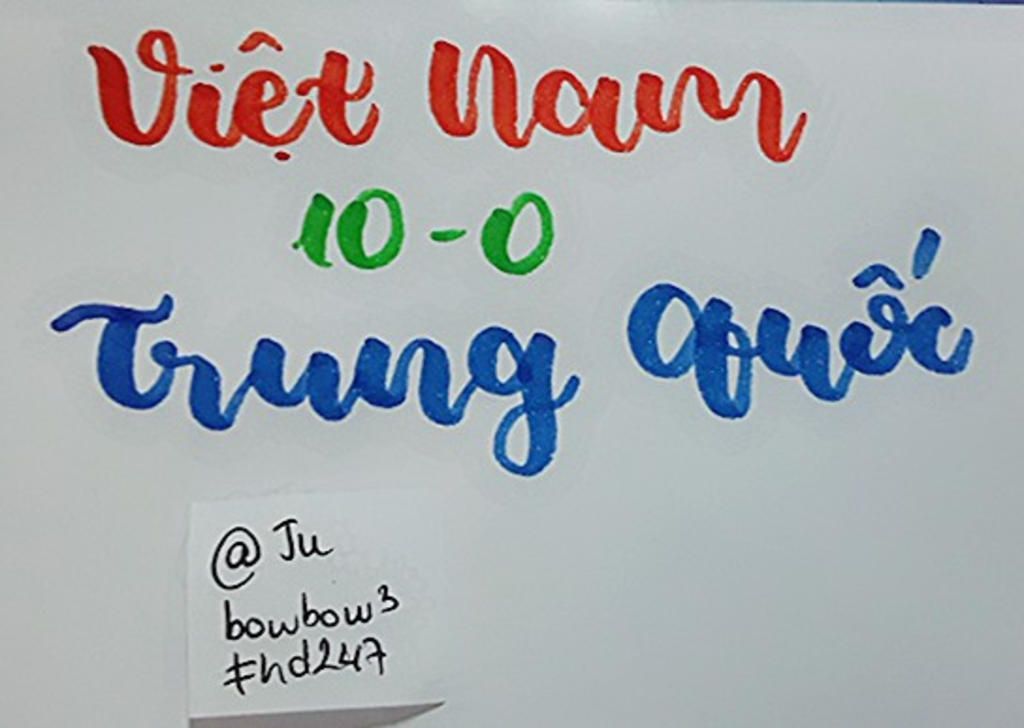 Việt Nam
10-0
Trung Quốc
@Ju
bowbow3
#hd247